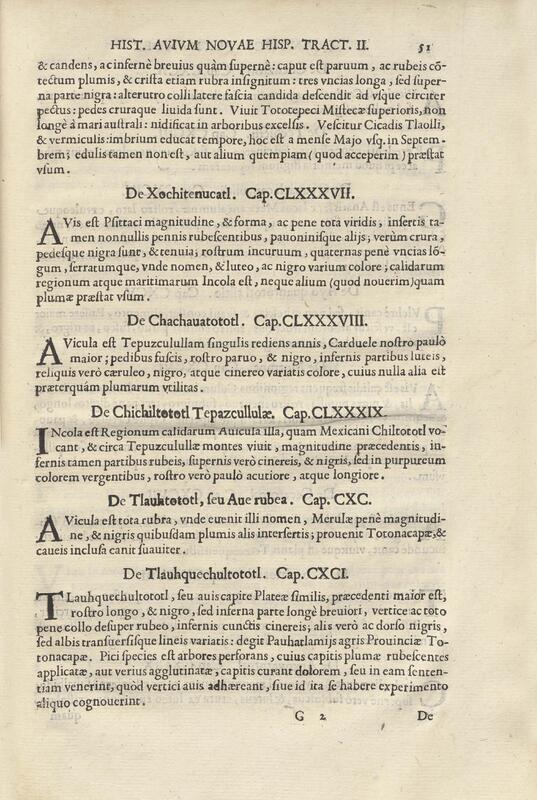 HIST. AVIVM NOVAE HISP. TRACT. II. 51
& candens, ac infernè breuius quàm supernè: caput est paruum, ac rubeis cō-
tectum plumis, & crista etiam rubra insignitum: tres vncias longa, sed super-
na parte nigra: alterutro colli latere fascia candida descendit ad vsque circiter
pectus: pedes cruraque liuida sunt. Viuit Tototepeci Mistecæ superioris, non
longè à mari australi: nidificat in arboribus excelsis. Vescitur Cicadis Tlaolli,
& vermiculis: imbrium educat tempore, hoc est a mense Majo vsq. in Septem-
brem; edulis tamen non est, aut alium quempiam (quod acceperim) præstat
vsum.
De Xochitenucatl. Cap. CLXXXVII.
AVis est Psittaci magnitudine, & forma, ac pene tota viridis, insertis ta-
men nonnullis pennis rubescentibus, pauoninisque alijs; verùm crura,
pedesque nigra sunt, & tenuia; rostrum incuruum, quaternas penè vncias lō-
gum, serratumque, vnde nomen, & luteo, ac nigro varium colore; calidarum
regionum atque maritimarum Incola est, neque alium (quod nouerim) quam
plumæ præstat vsum.
De Chachauatototl. Cap. CLXXXVIII.
AVicula est Tepuzculullam singulis rediens annis, Carduele nostro paulò
maior; pedibus fuscis, rostro paruo, & nigro, infernis partibus luteis,
reliquis verò cæruleo, nigro, atque cinereo variatis colore, cuius nulla alia est
præterquàm plumarum vtilitas.
De Chichiltototl Tepazcullulæ. Cap. CLXXXIX.
INcola est Regionum calidarum Auicula illa, quam Mexicani Chiltototl vo-
cant, & circa Tepuzculullæ montes viuit, magnitudine præcedentis, in-
fernis tamen partibus rubeis, supernis verò cinereis, & nigris, sed in purpureum
colorem vergentibus, rostro verò paulò acutiore, atque longiore.
De Tlauhtototl, seu Aue rubea. Cap. CXC.
AVicula est tota rubra, vnde euenit illi nomen, Merulæ penè magnitudi-
ne, & nigris quibusdam plumis alis intersertis; prouenit Totonacapæ, &
caueis inclusa canit suauiter.
De Tlauhquechultototl. Cap. CXCI.
TLauhquechultototl, seu auis capite Plateæ similis, præcedenti maior est,
rostro longo, & nigro, sed inferna parte longè breuiori, vertice ac toto
pene collo desuper rubeo, infernis cunctis cinereis; alis verò ac dorso nigris,
sed albis transuersisque lineis variatis: degit Pauhatlamijs agris Prouinciæ To-
tonacapæ. Pici species est arbores perforans, cuius capitis plumæ rubescentes
applicatæ, aut verius agglutinatæ, capitis curant dolorem, seu in eam senten-
tiam venerint, quòd vertici auis adhæreant, siue id ita se habere experimento
aliquo cognouerint.
G 2 De